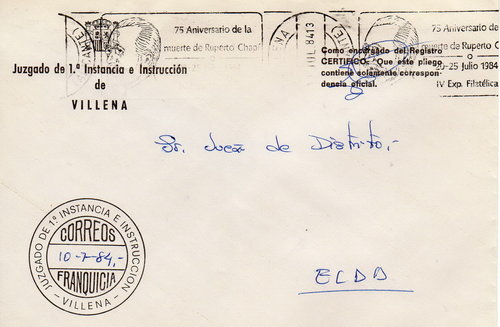 75 Aniversario de la
muerte de Ruperto Chapí
75 Aniversario de
muerte de Ruperto C
20-25 Julio 1984
IV Exp. Filatélica
Como encargado del Registro
CERTIFICO: Que este pliego
contiene solamente correspon-
dencia oficial.
Juzgado de 1.ª Instancia e Instrucción
de
VILLENA
Sr. Juez de Distrito,-
JUZGADO DE 1ª INSTANCIA E INSTRUCCION
CORREOS
10-7-84,-
FRANQUICIA
- VILLENA -
ELDA